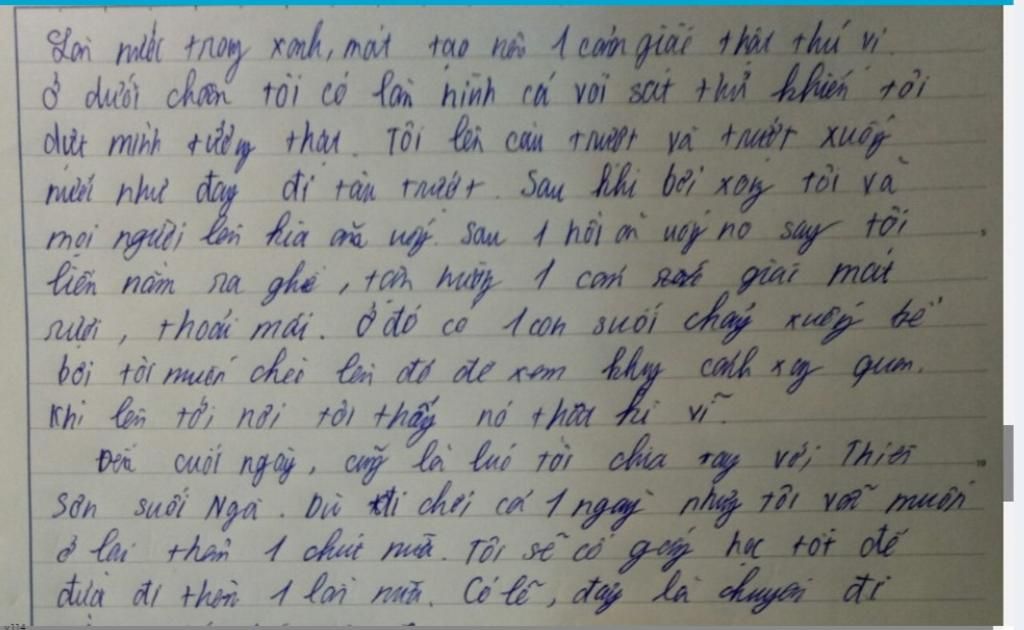 Làn nước trong xanh, mát tạo nên 1 cảm giác thật thú vị.
Ở dưới chân tôi có làn hình cá voi sát thủ khiến tôi
dựt mình tưởng thật. Tôi lên cầu trượt và trượt xuống
nước như đang đi tàu trượt. Sau khi bơi xong tôi và
mọi người lên kia ăn uống. Sau 1 hồi ăn uống no say tôi
liền nằm ra ghế, tận hưởng 1 cảm giác mát
rượi, thoải mái. Ở đó có 1 con suối chảy xuống bể
bơi tôi muốn chèo lên đó để xem khung cảnh xung quan.
Khi lên tới nơi tôi thấy nó thật kì vĩ.
Đến cuối ngày, cũng là lúc tôi chia tay với Thiên
Sơn suối Ngà. Dù đi chơi cả 1 ngày nhưng tôi vẫn muốn
ở lại thêm 1 chút nữa. Tôi sẽ cố gắng học tốt để
đưa đi thêm 1 lần nữa. Có lẽ, đây là chuyến đi